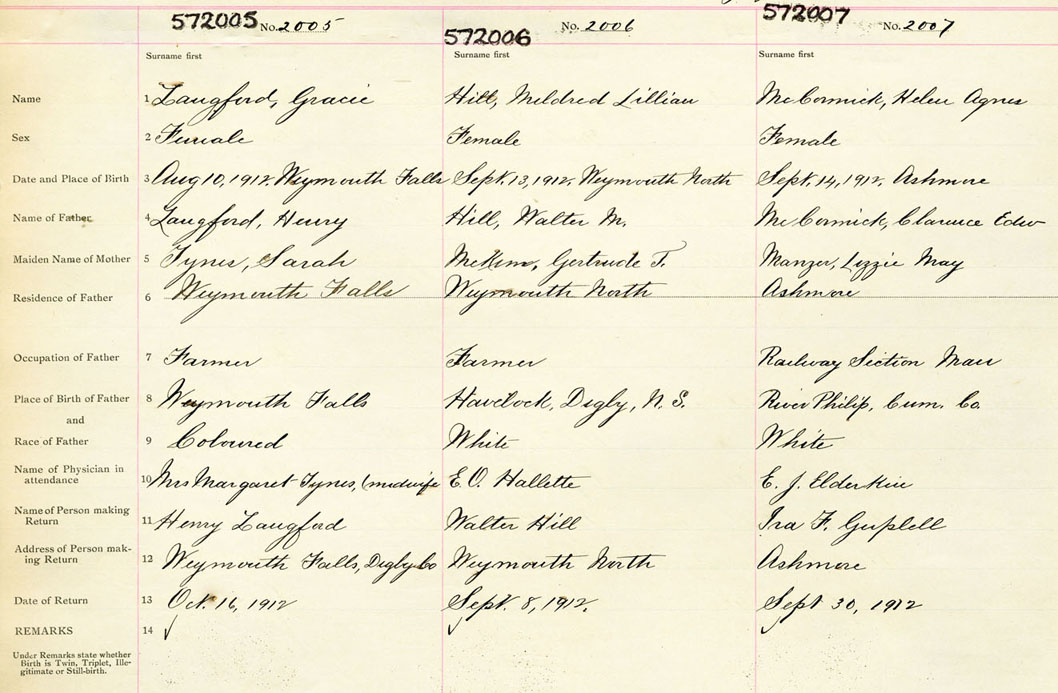 572005 No. 2005 572006 No. 2006 572007 No. 2007
Surname first Surname first Surname first
Name 1 Langford, Gracie Hill, Mildred Lillian McCormick, Helen Agnes
Sex 2 Female Female Female
Date and Place of Birth 3 Aug 10, 1912. Weymouth Falls Sept. 13, 1912. Weymouth North Sept. 14, 1912. Ashmore
Name of Father 4 Langford, Henry Hill, Walter M. McCormick, Clarence Edw
Maiden Name of Mother 5 Tynes, Sarah Gertrude T. Manzer, Lizzie May
Residence of Father 6 Weymouth Falls Weymouth North Ashmore
Occupation of Father 7 Farmer Farmer Railway Section Man
Place of Birth of Father 8 Weymouth Falls Havelock, Digby, N. S. River Philip, Cum. Co.
and
Race of Father 9 Coloured White White
Name of Physician in
attendance 10 Mrs Margaret Tynes, (midwife E. O. Hallette E. J. Elderkin
Name of Person making
Return 11 Henry Langford Walter Hill Ira F.
Address of Person mak-
ing Return 12 Weymouth Falls, Digby Co Weymouth North Ashmore
Date of Return 13 Oct. 16, 1912 Sept. 8, 1912. Sept 30, 1912
REMARKS 14 ✓ ✓ ✓
Under Remarks state whether
Birth is Twin, Triplet, Ille-
gitimate or Still-birth.